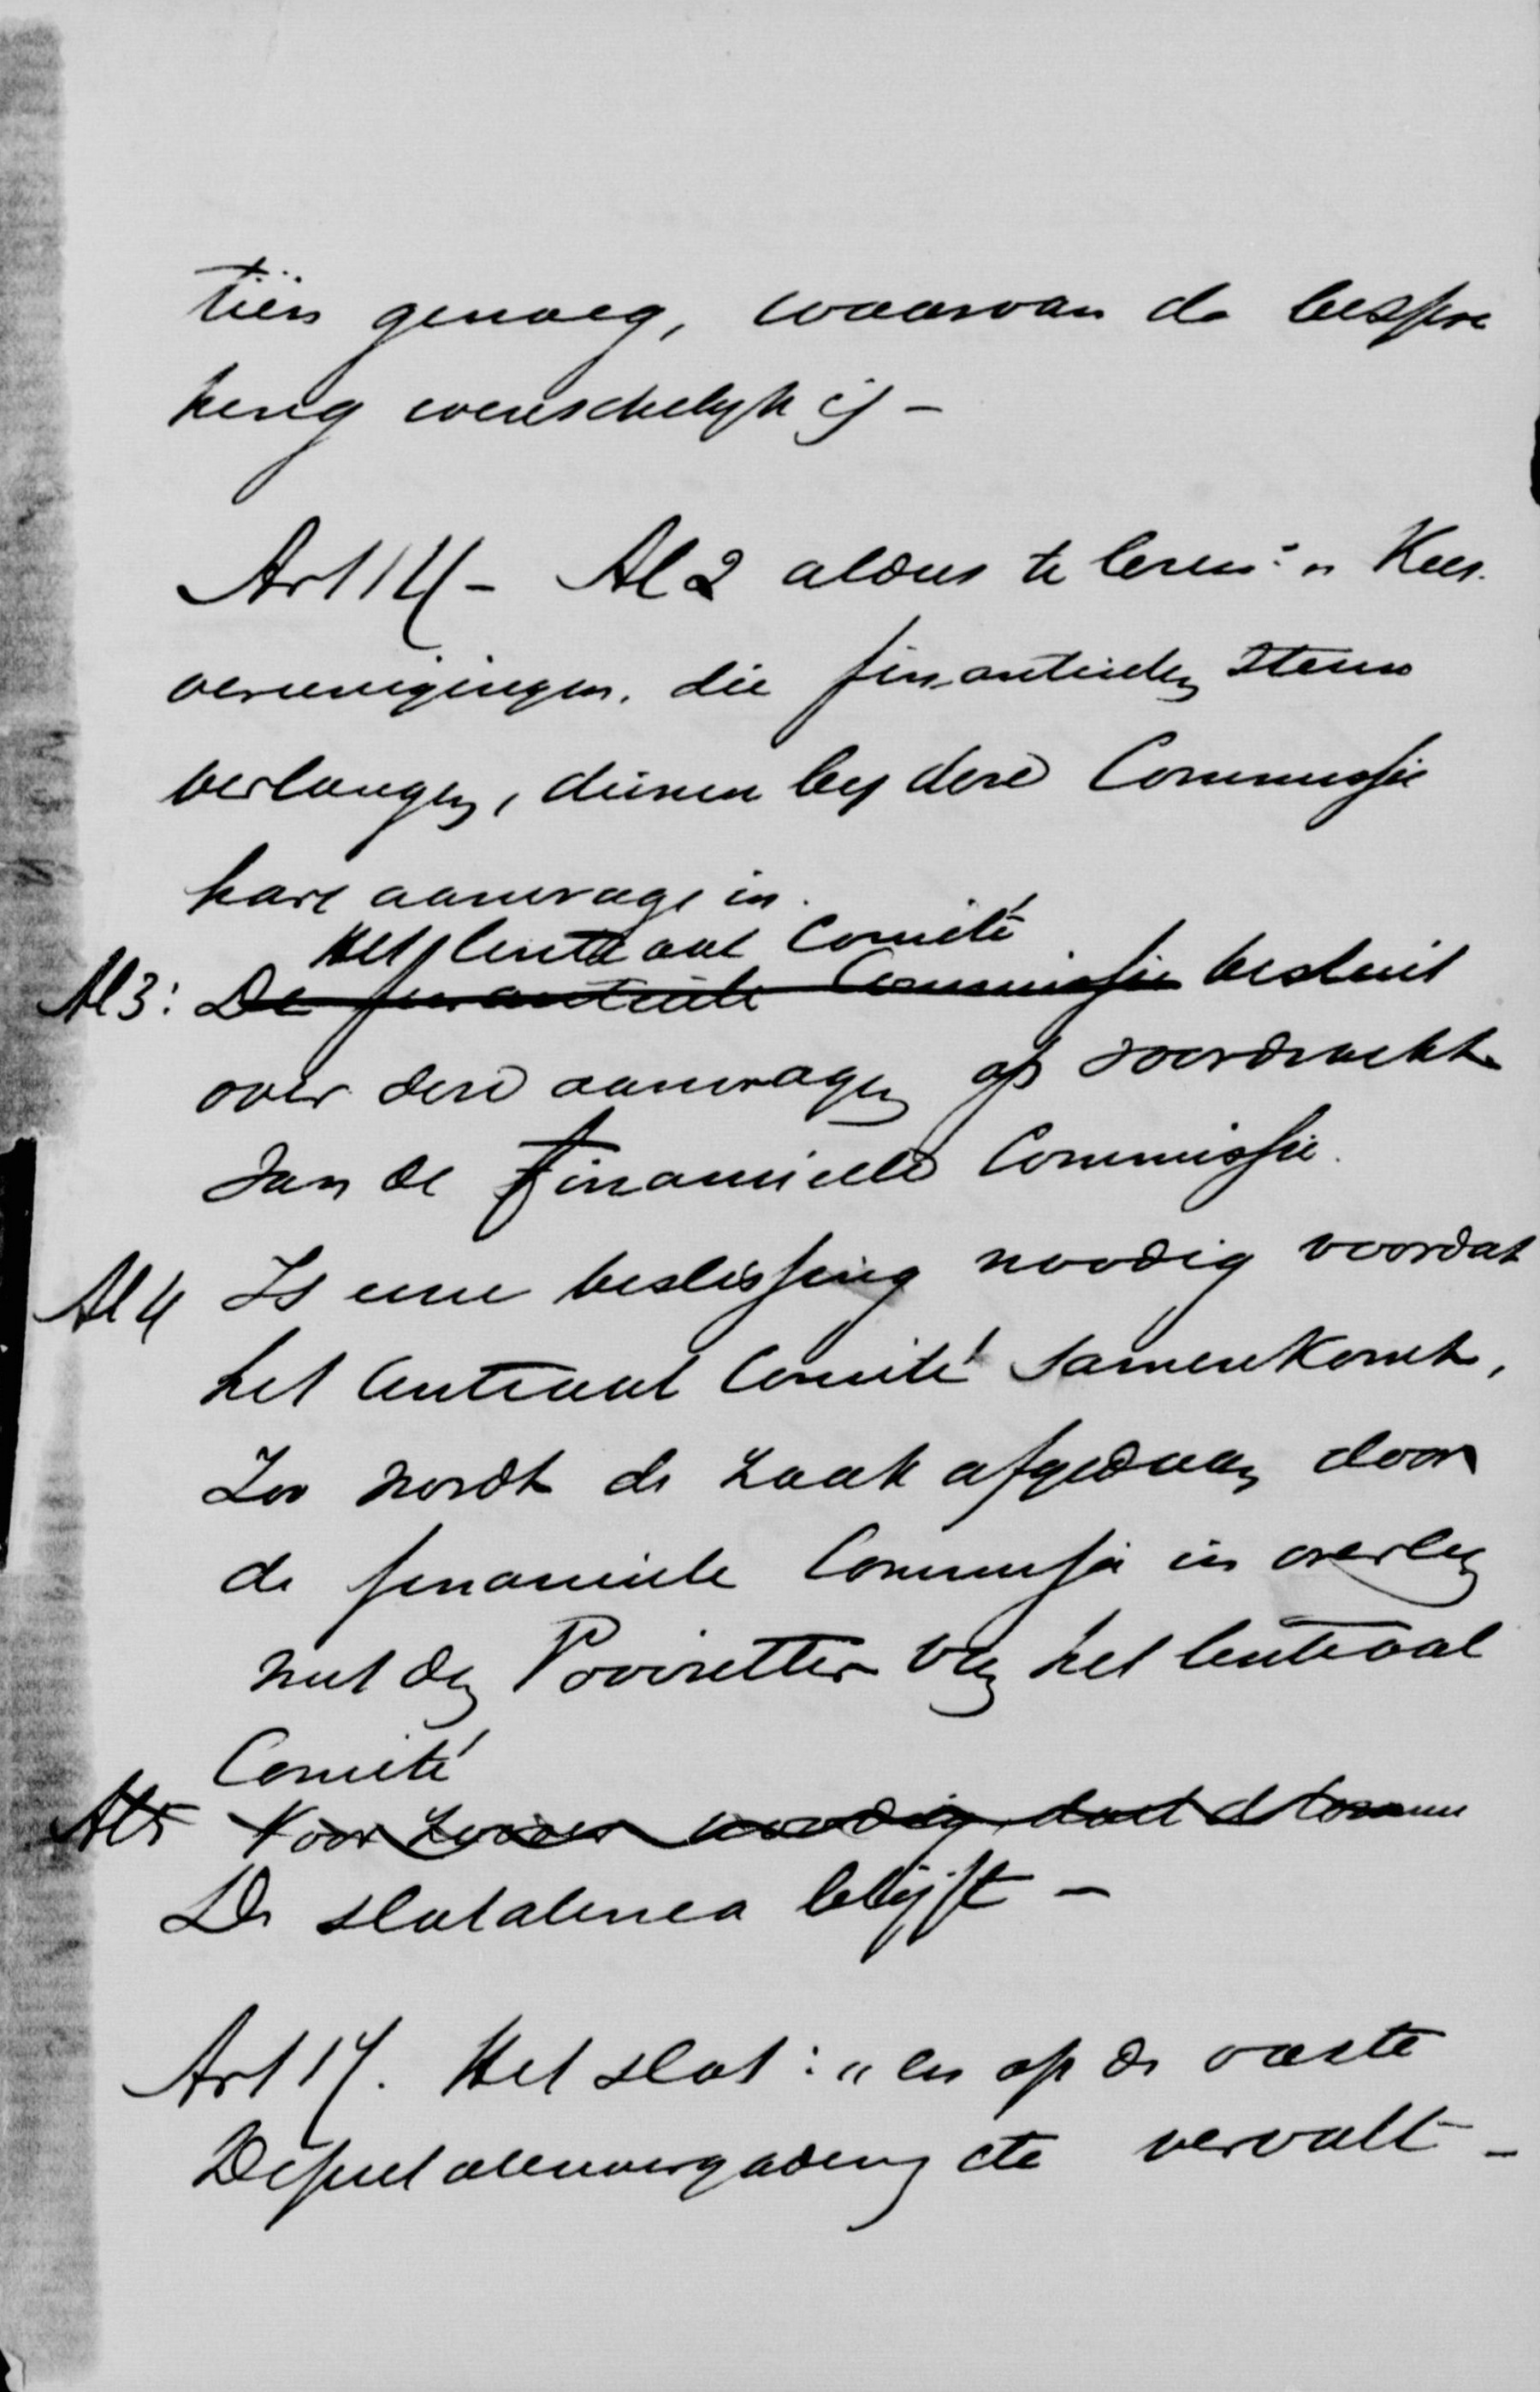 tiën genoeg, waarvan de bespre
king wenschelijk is –
Art 14 – Al 2 aldus te lezen: „Kies-
vereenigingen, die finantieelen steun
verlangen, dienen bij deze Commissie
hare aanvrage in.
Het Centraal Comité
Al 3: De finantieele Commissie besluit
over deze aanvragen op voordracht
van de Financieele Commissie.
Al 4 Is eene beslissing noodig voordat
het Centraal Comité samenkomt,
Zoo wordt de zaak afgedaan door
de financieele Commissie in overleg
met den Voorzitter van het Centraal
Comité
Al 5 Voor zoover noodig doet de Comm
De slotalinea blijft –
Art 17. Het slot: „en op de vaste
Deputatenvergadering etc vervalt –